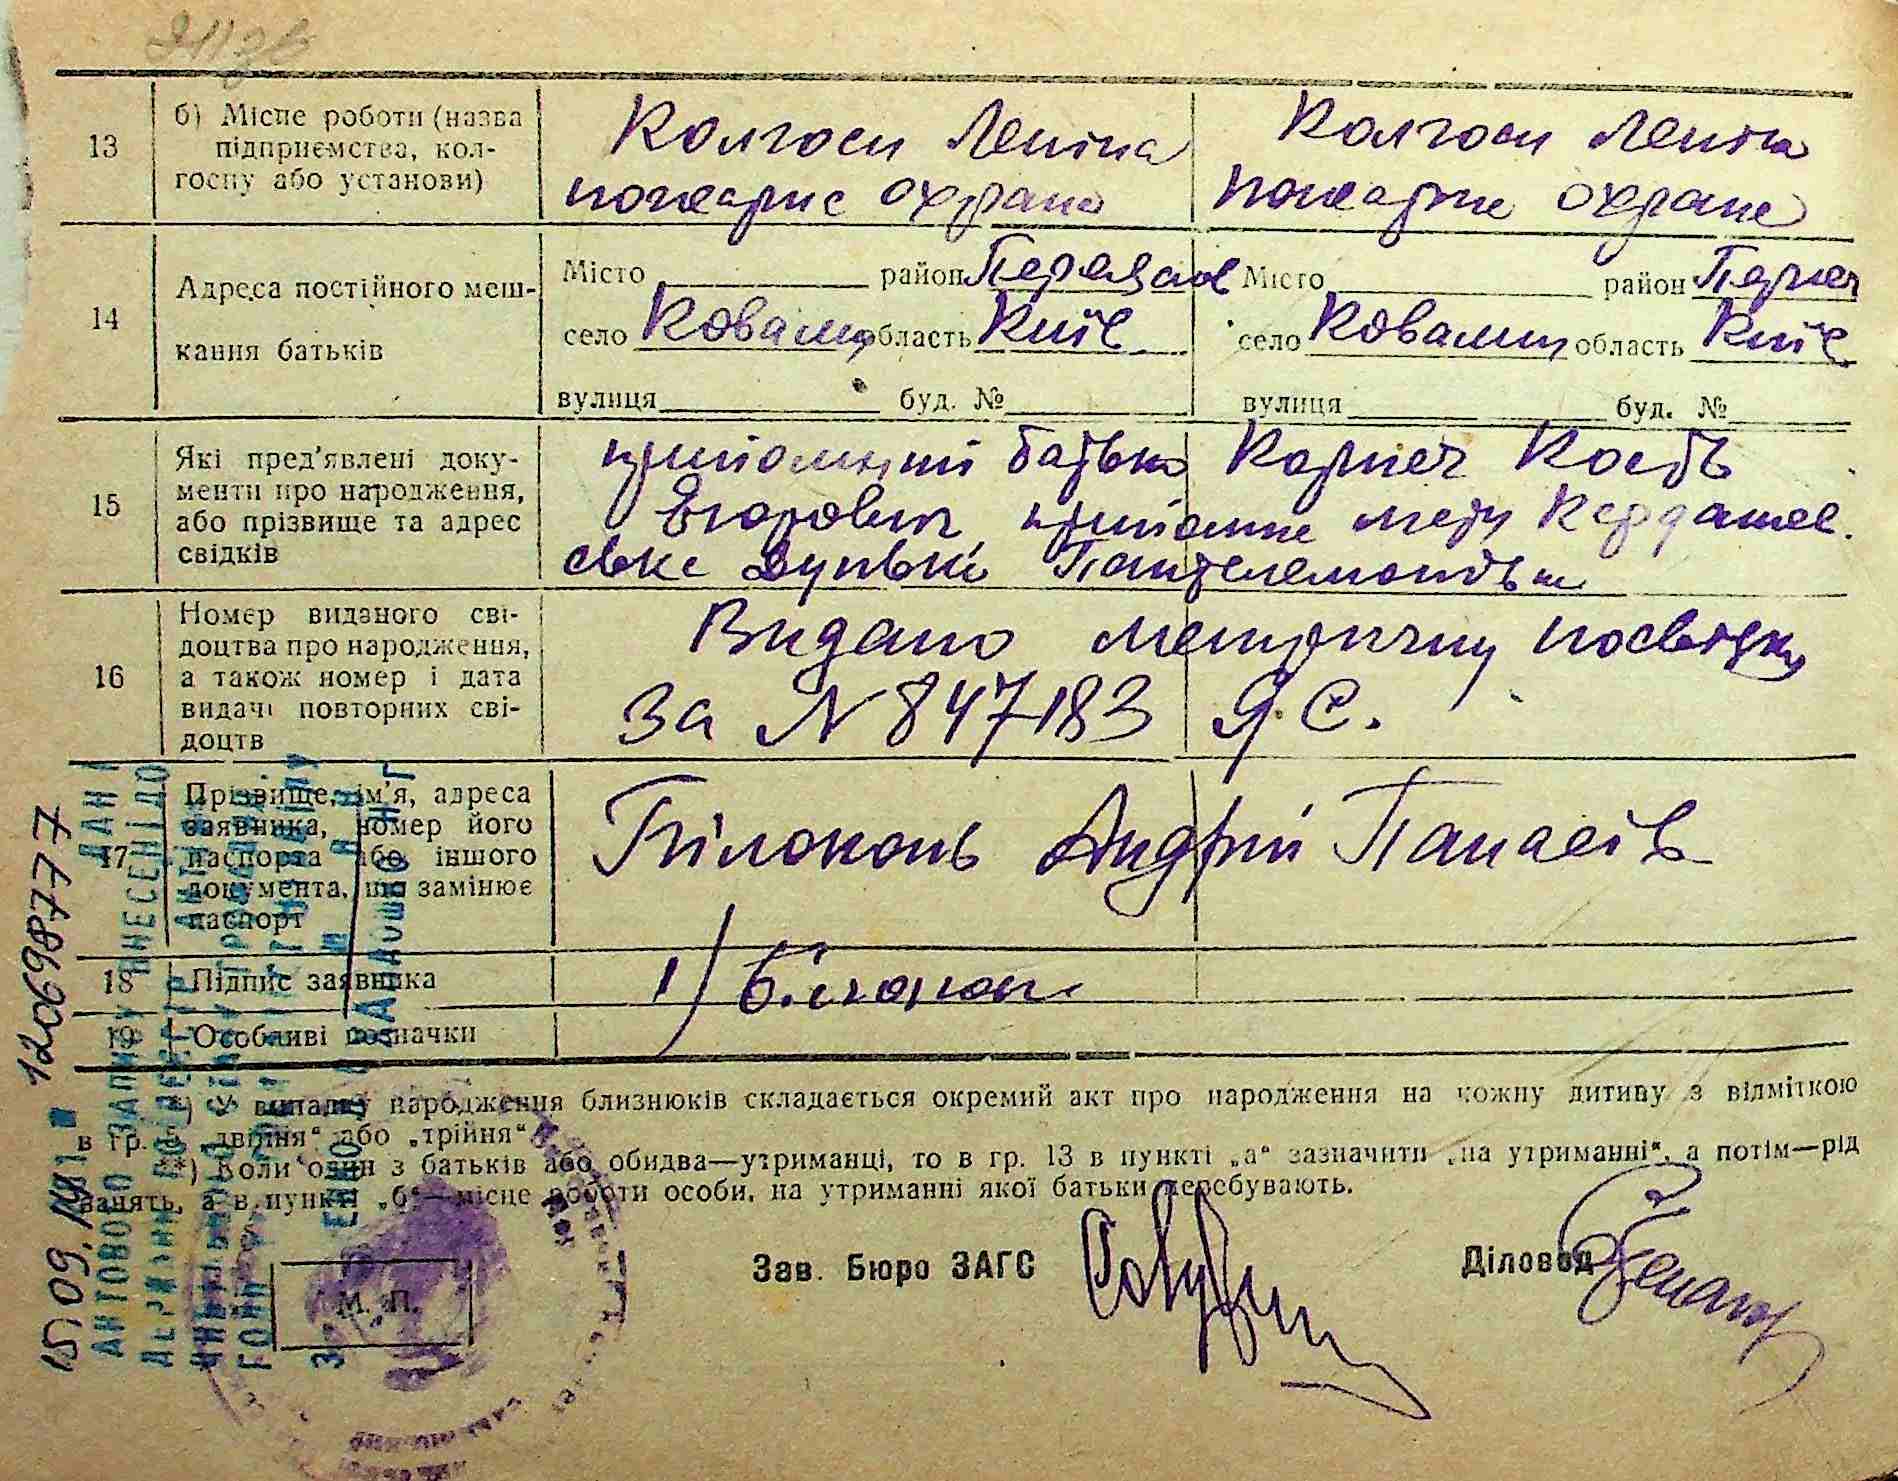 13
б) Місце роботи (назва
підприємства, кол-
госпу або установи)
Колгосп Леніна
пожарне охрана
Колгосп Леніна
пожарне охране
14
Адреса постійного меш-
кання батьків
Місто район Переяслов
село Ковалин область Київ
вулиця буд. №
Місто район Переяс
село Ковалин область Київ
вулиця буд. №
15
Які пред'явлені доку-
менти про народження,
або прізвище та адрес
свідків
батько Карпеч Кость
Егорович
Пантелемонівна
16
Номер виданого сві-
доцтва про народження,
а також номер і дата
видачі повторних сві-
доцтв
Видано метричну посвідку
За № 847183 Я.С.
17
Прізвище, ім'я, адреса
заявника, номер його
паспорта або іншого
документа, що замінює
паспорт
Білоконь Андрій Панасів
18
Підпис заявника
1) Білоконь
19
Особливі позначки
*) У випадку народження близнюків складається окремий акт про народження на кожну дитину з відміткою
в гр. „двійня“ або „трійня“
**) Коли один з батьків або обидва—утриманці, то в гр. 13 в пункті „а“ зазначити „на утриманні“, а потім—рід
занять, а в пункті „б“—місце роботи особи, на утриманні якої батьки перебувають.
Зав. Бюро ЗАГС
Діловод
М. П.
15.09.
12069877777